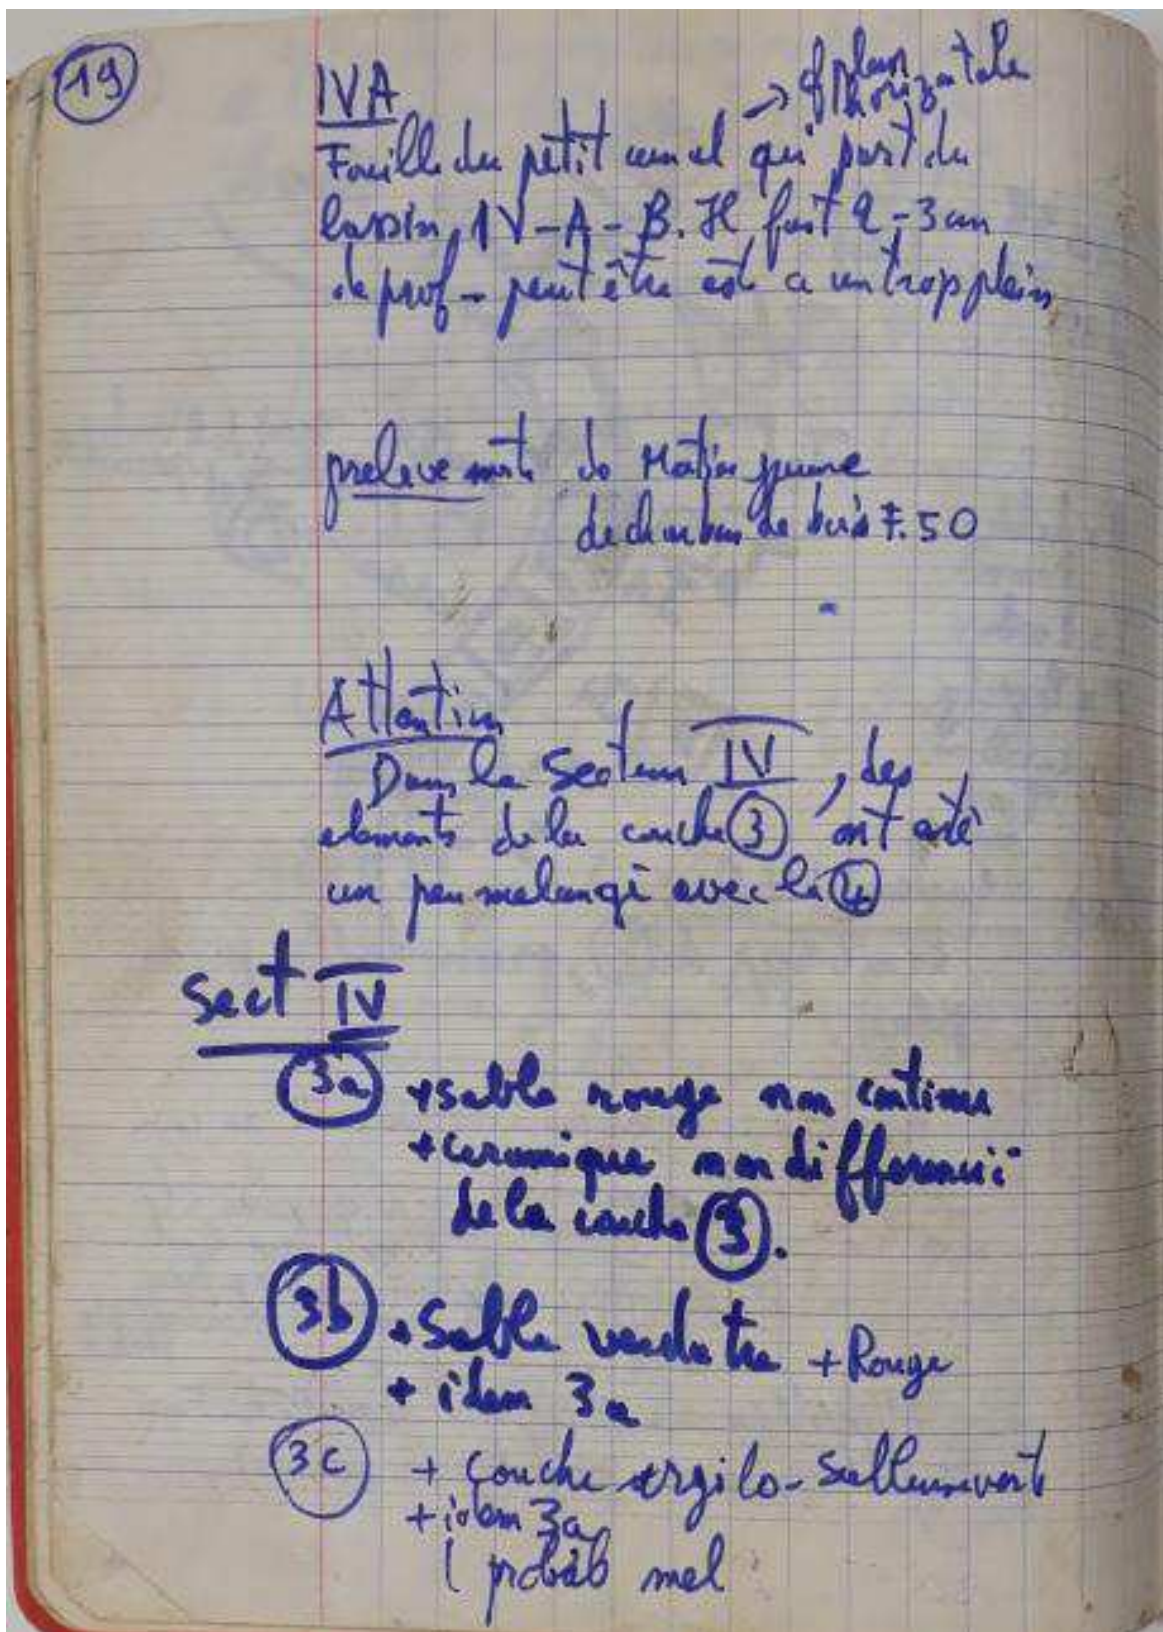 19
IVA
→ cf plan
horizontale
Fouille du petit canal qui part du
bassin IV-A-B. Il fait 2-3 cm
de prof - peut être est ce un trop plein
prelevements de Matière jaune
de charbon de bois F.50
Attention
Dans le Secteur IV, des
elements de la couche 3 ont été
un peu melangé avec la 4
Sect IV
3a +sable rouge non continu
+ceramique non differencié
de la couche 3.
3b + Sable verdatre + Rouge
+ idem 3a
3c + couche argilo-sableuse verte
+ idem 3a
( probab mel